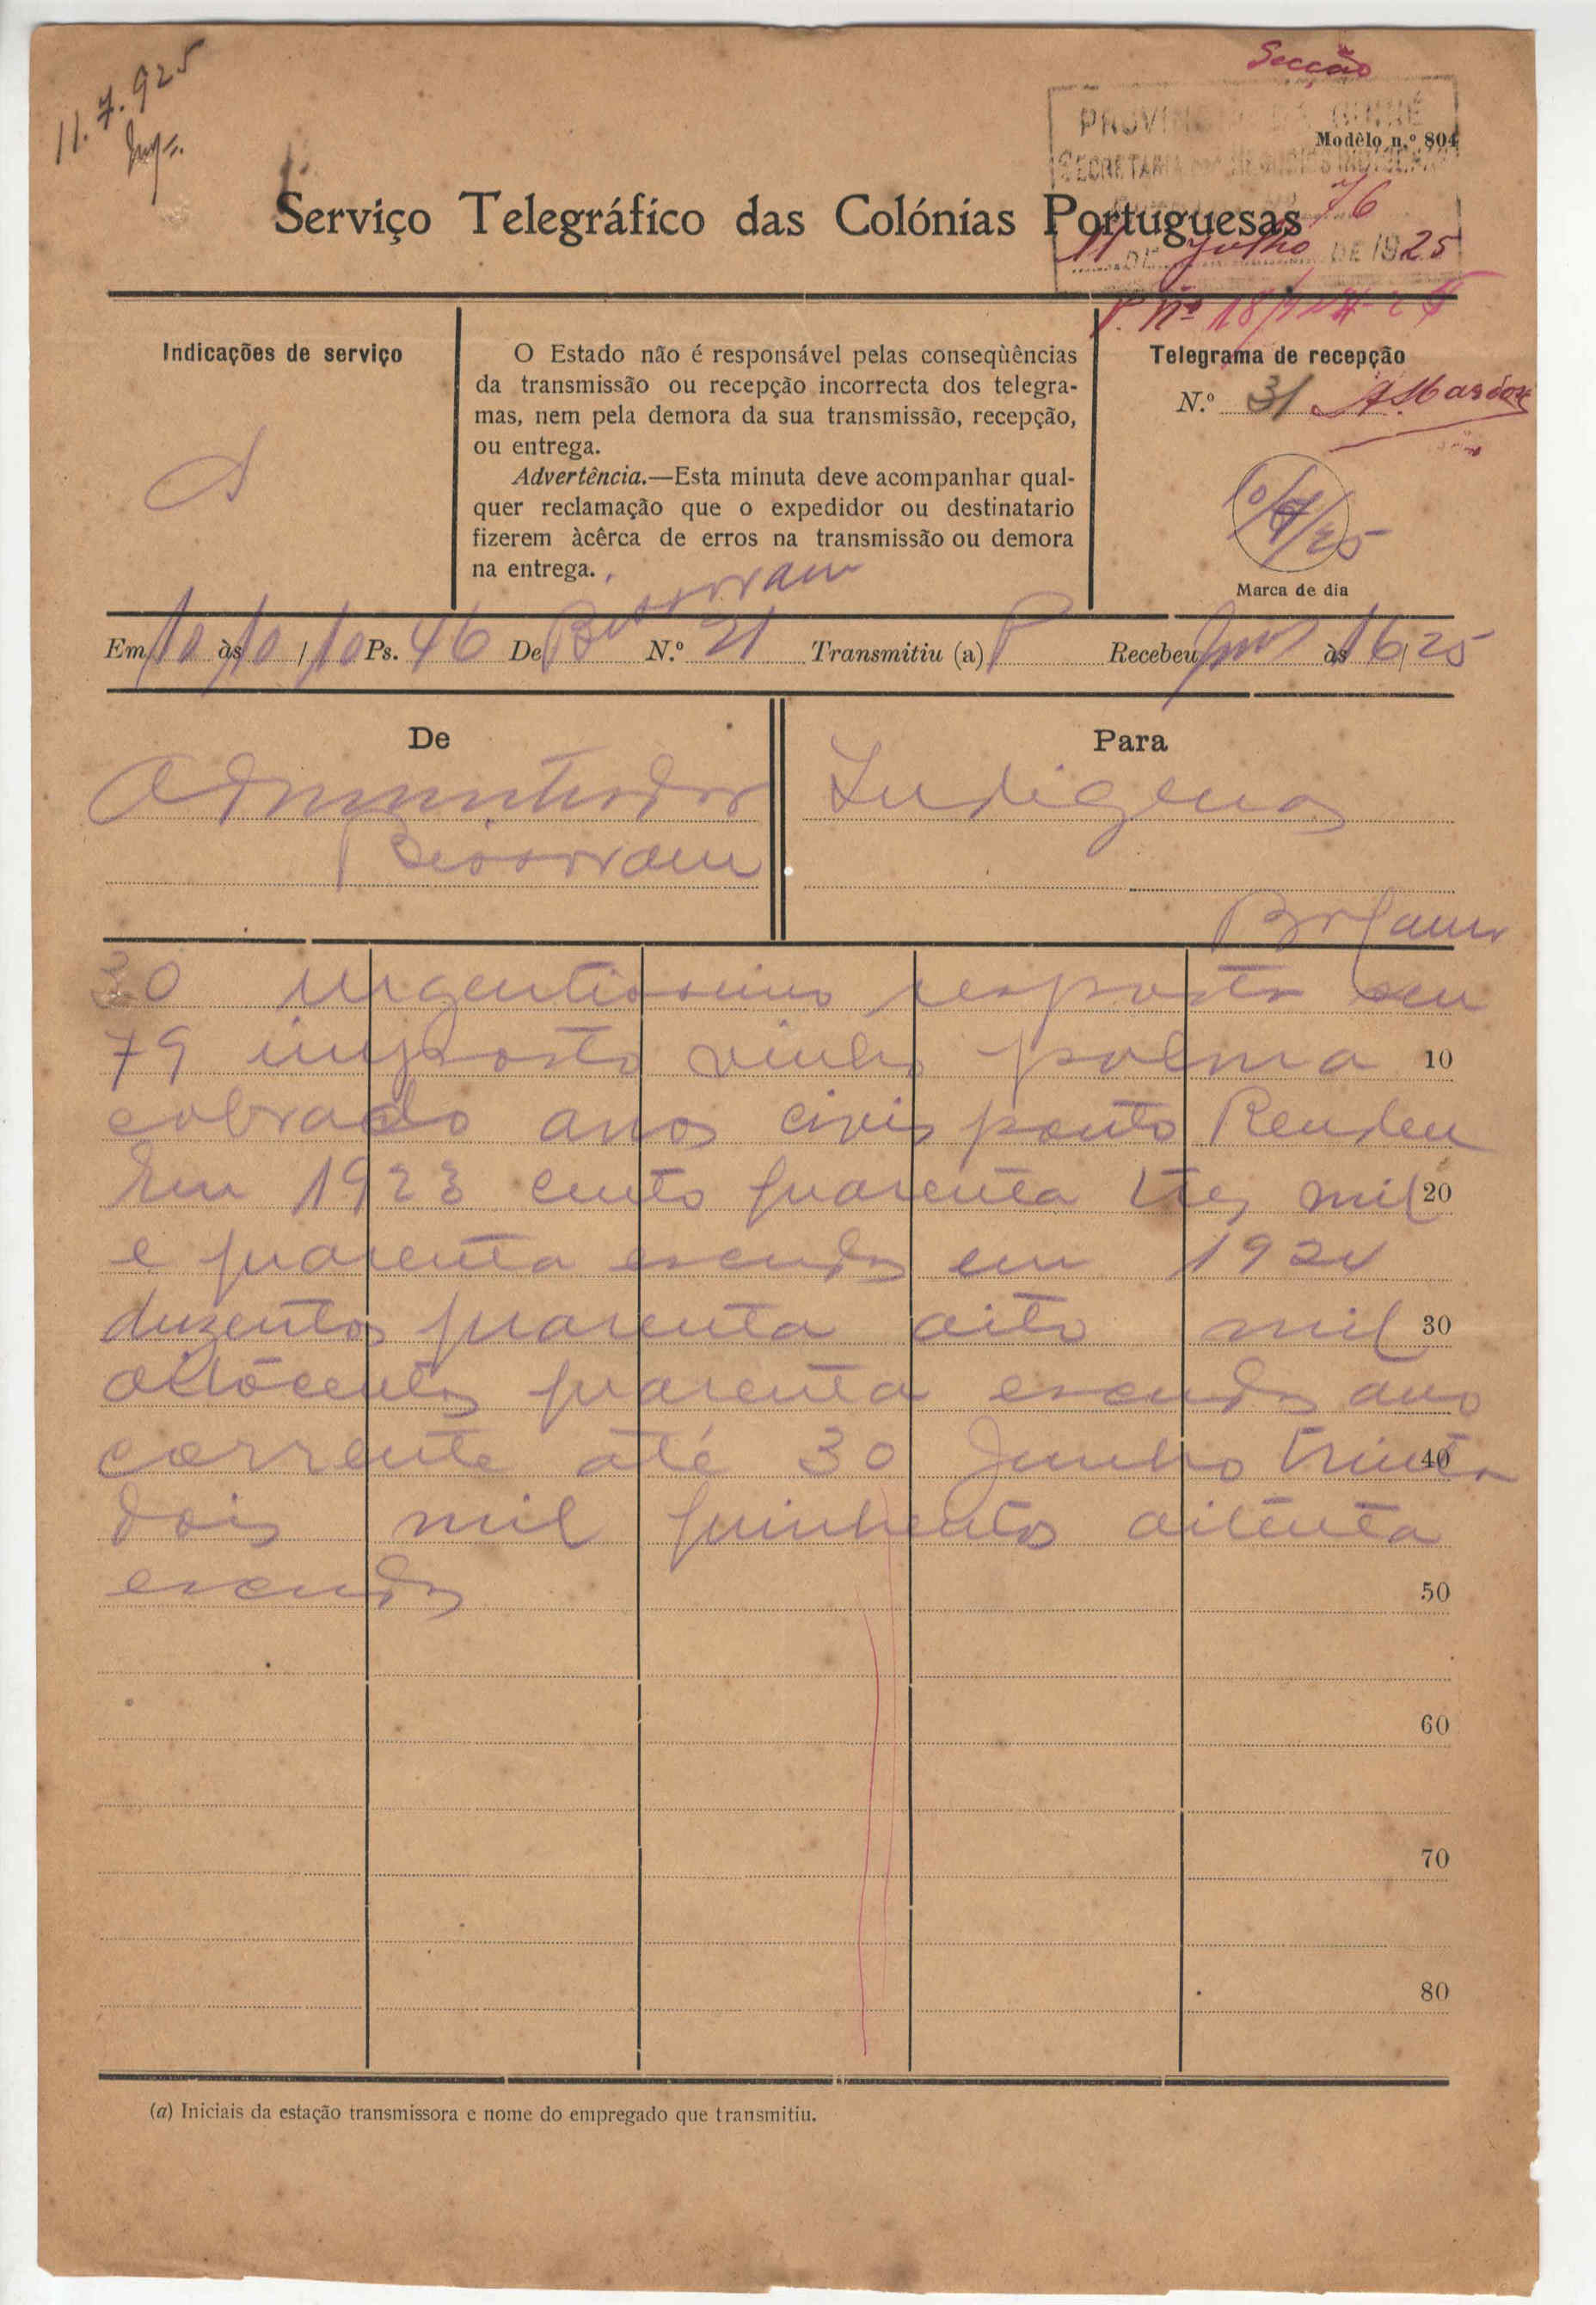 11.7.925
Secção
PROVINCIA DA GUINÉ
Modêlo n.º 804
SECRETARIA DOS NEGOCIOS INDIGENAS
76
Serviço Telegráfico das Colónias Portuguesas
11 DE Julho DE 1925
P. Nº
Indicações de serviço
O Estado não é responsável pelas conseqùências
da transmissão ou recepção incorrecta dos telegra-
mas, nem pela demora da sua transmissão, recepção,
ou entrega.
Advertência.—Esta minuta deve acompanhar qual-
quer reclamação que o expedidor ou destinatario
fizerem àcêrca de erros na transmissão ou demora
na entrega.
Telegrama de recepção
N.º 31
10/7/25
Marca de dia
Em 10 às 10 / 10 Ps. 46 De Bissorram N.º 21 Transmitiu (a) P Recebeu às 16/25
De
Administrador
Bissorram
Para
Indigenas
Bolama
30 urgentissimo resposta seu
79 imposto vinho palma 10
cobrado anos civis ponto Rendeu
Em 1923 cento quarenta tres mil 20
e quarenta escudos em 1924
duzentos quarenta oito mil 30
oitocentos quarenta escudos ano
corrente até 30 Junho trinta 40
dois mil quinhentos oitenta
escudos 50
60
70
80
(a) Iniciais da estação transmissora e nome do empregado que transmitiu.